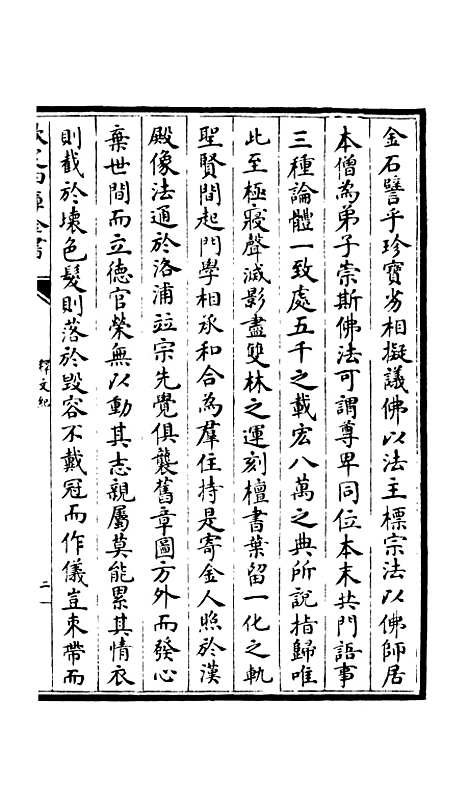 金石譬乎珍寶劣相擬議佛以法主標宗法以佛師居
本僧為弟子崇斯佛法可謂尊卑同位本末共門語事
三種論體一致處五千之載宏八萬之典所說指歸唯
此至極寢聲滅影盡雙林之運刻檀書葉留一化之軌
聖賢間起門學相承和合為羣住持是寄金人照於漢
殿像法通於洛浦竝宗先覺俱襲舊章圖方外而發心
棄世間而立德官榮無以動其志親屬莫能累其情衣
則截於壞色髮則落於毀容不戴冠而作儀豈束帶而
欽定四庫全書
釋文紀